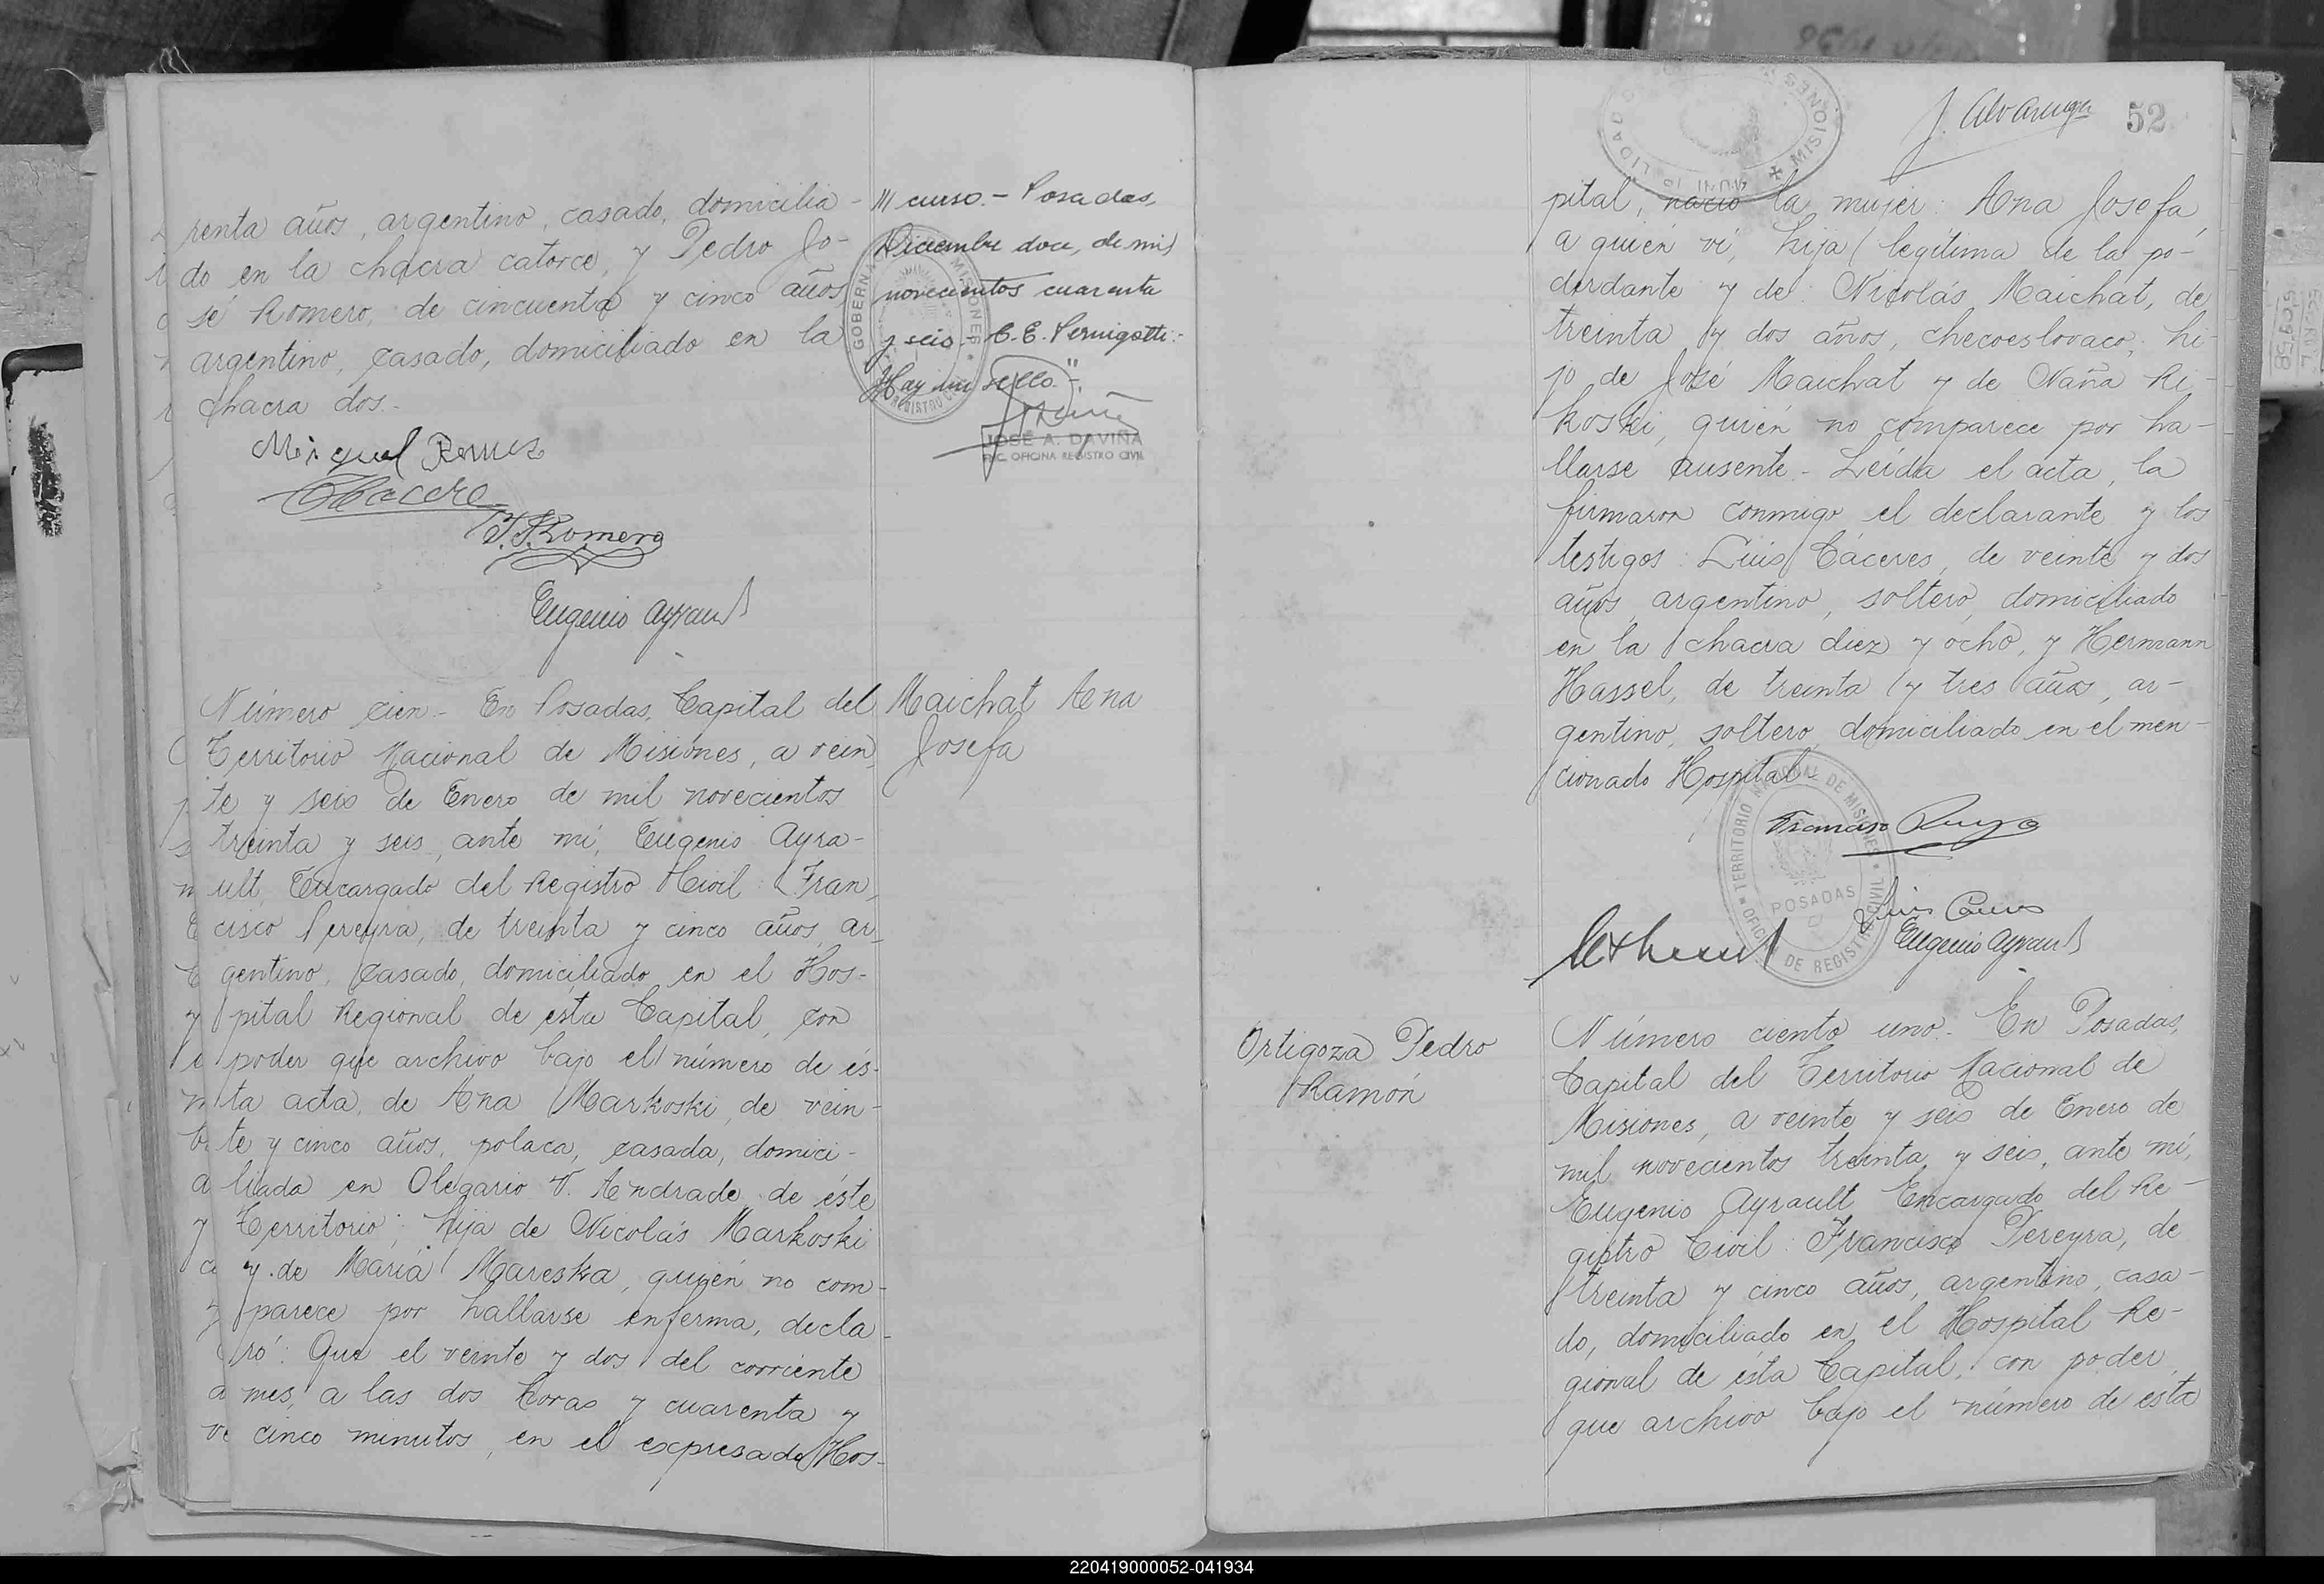 renta años, argentino, casado, domicilia-
do en la chacra catorce, y Pedro Jo-
sé Romero, de cincuenta y cinco años
argentino, casado, domiciliado en la
chacra dos.-
J. P. Romero
Eugenio Ayrault
curso.- Posadas,
Diciembre doce, de mil
novecientos cuarenta
y seis.- C. E. Pernigotti.-
Hay un sello."-
JOSÉ A. DAVIÑA
ENC. OFICINA REGISTRO CIVIL
Número cien.- En Posadas, Capital del
Territorio Nacional de Misiones, a vein
te y seis de Enero de mil novecientos
treinta y seis, ante mí, Eugenio Ayra-
ult, Encargado del Registro Civil: Fran
cisco Pereyra, de treinta y cinco años, ar-
gentino, casado, domiciliado en el Hos-
pital Regional de esta Capital, con
poder que archivo bajo el número de és-
ta acta, de Ana Markoski, de vein-
te y cinco años, polaca, casada, domici-
liada en Olegario V. Andrade de éste
Territorio; hija de Nicolás Markoski
y de María Mareska, quién no com-
parece por hallarse enferma, decla-
ró: Que el veinte y dos del corriente
mes, a las dos horas y cuarenta y
cinco minutos, en el expresado Hos-
Maichat Ana
Josefa
J. Alvarenga
52
MISIONES
pital, nació la mujer: Ana Josefa,
a quién ví, hija legítima de la po-
derdante y de: Nicolás Maichat, de
treinta y dos años, checoeslovaco; hi-
jo de José Maichat y de Naña Ri-
koski, quién no comparece por ha-
llarse ausente.- Leída el acta, la
firmaron conmigo el declarante y los
testigos: Luis Cáceres, de veinte y dos
años, argentino, soltero, domiciliado
en la chacra diez y ocho, y Hermann
Hassel, de treinta y tres años, ar-
gentino, soltero, domiciliado en el men-
cionado Hospital.-
TERRITORIO NACIONAL DE MISIONES
POSADAS
OFICINA DE REGISTRO CIVIL
Eugenio Ayrault
Ortigoza Pedro
Ramón
Número ciento uno.- En Posadas,
Capital del Territorio Nacional de
Misiones, a veinte y seis de Enero de
mil novecientos treinta y seis, ante mí,
Eugenio Ayrault, Encargado del Re-
gistro Civil: Francisco Pereyra, de
treinta y cinco años, argentino, casa-
do, domiciliado en el Hospital Re-
gional de ésta Capital, con poder
que archivo bajo el número de ésta
220419000052-041934